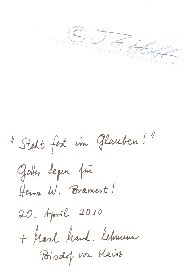 "Steht fest im Glauben!"
Gottes Segen für
Herrn W. Bramert!
20. April 2010
+ Karl Kard. Lehmann
Bischof von Mainz